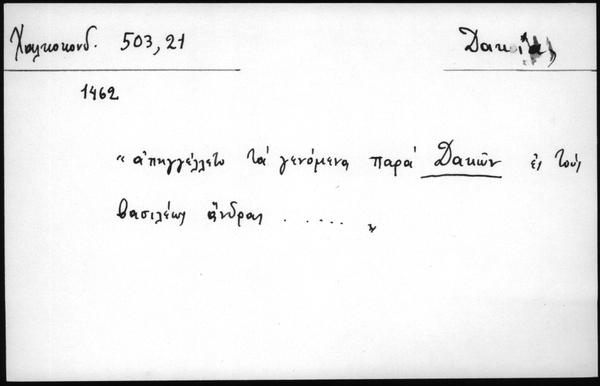 Χαλκοκονδ. 503,21
Δακία
1462
"ἀπηγγέλλετο τά γενόμενα παρά Δακῶν ἐς τούς
βασιλέως ἄνδρας ..... "